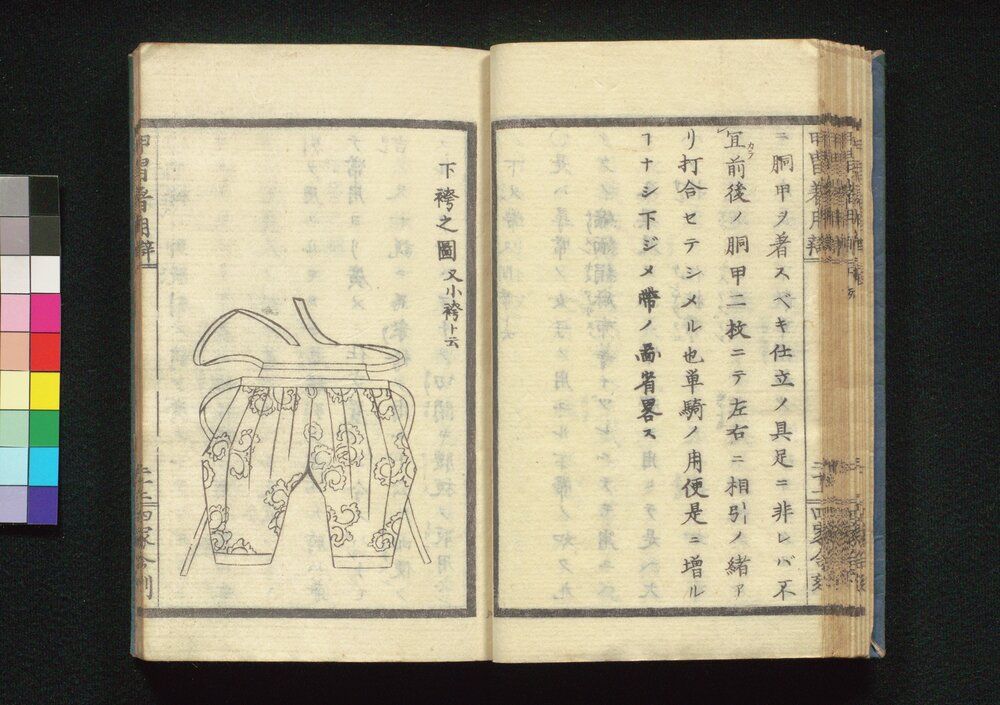 ニ胴甲ヲ著スベキ仕立ノ具足ニ非レバ不
宜カラ前後ノ胴甲二枚ニテ左右ニ相引ノ緒ア
リ打合セテシメル也単騎ノ用便是ニ増ル
ヿナシ下ジメ帶ノ圖省畧ス
下袴之圖又小袴ト云
甲冑着用辨
四家合刻